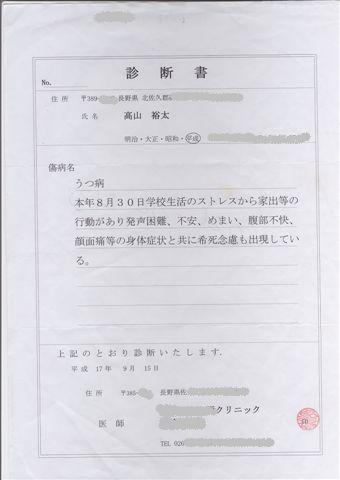 診断書
No.
住所 〒389- 長野県 北佐久郡
氏名 高山 裕太
明治・大正・昭和・平成
傷病名
うつ病
本年8月30日学校生活のストレスから家出等の
行動があり発声困難、不安、めまい、腹部不快、
顔面痛等の身体症状と共に希死念慮も出現してい
る。
上記のとおり診断いたします.
平成 17年 9月 15日
住所 〒385- 長野県佐
クリニック
医師 印
TEL 026